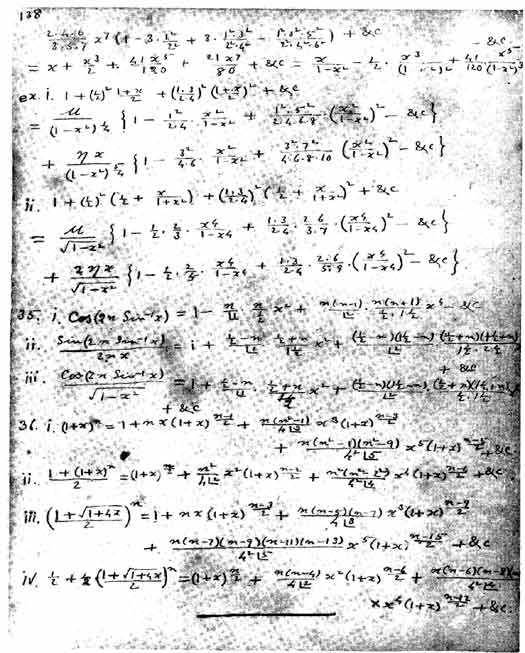 138
2·4·6/3·5·7 x⁷ {1 - 3·1²/2² + 3·1²·3²/2²·4² - 1²·3²·5²/2²·4²·6²} + &c
= x + x³/2 + 41x⁵/120 + 21x⁷/80 + &c = x/(1-x²) - ½· x³/(1-x²)² + 41/120 x⁵/(1-x²)³ - &c
ex. i. 1 + (½)² (1+x)/2 + (1·3/2·4)² ((1+x)/2)² + &c
= μ/(1-x²)^¼ {1 - 1²/2·4 · x²/(1-x²) + 1²·5²/2·4·6·8 (x²/(1-x²))² - &c}
+ ηx/(1-x²)^5/4 {1 - 3²/4·6 · x²/(1-x²) + 3²·7²/4·6·8·10 (x²/(1-x²))² - &c}
ii. 1 + (½)² (½ + x/(1+x²)) + (1·3/2·4)² (½ + x/(1+x²))² + &c
= μ/√(1-x²) {1 - ½·⅔· x⁴/(1-x⁴) + 1·3/2·4 · 2·6/3·7 · (x⁴/(1-x⁴))² - &c}
+ 2ηx/√(1-x²) {1 - ½·⅖· x⁴/(1-x⁴) + 1·3/2·4 · 2·6/5·9 · (x⁴/(1-x⁴))² - &c}
35. i. Cos(2n Sin⁻¹x) = 1 - n/⌊1 · n/½ x² + n(n-1)/⌊2 · n(n+1)/½·1½ x⁴ - &c
ii. Sin(2n Sin⁻¹x)/2nx = 1 + (½-n)/⌊1 · (½+n)/1½ x² + (½-n)(1½-n)/⌊2 · (½+n)(1½+n)/1½·2½ + &c
iii. Cos(2n Sin⁻¹x)/√(1-x²) = 1 + (½-n)/⌊1 · (½+n)/½ x² + (½-n)(1½-n)/⌊2 · (½+n)(1½+n)/½·1½
+ &c
36. i. (1+x)ⁿ = 1 + nx(1+x)^(n-1)/2 + n(n²-1)/4⌊3 x³(1+x)^(n-3)/2
+ n(n²-1)(n²-9)/4²⌊5 x⁵(1+x)^(n-5)/2 + &c
ii. (1+(1+x)ⁿ)/2 = (1+x)^n/2 + n²/4⌊2 x²(1+x)^(n-2)/2 + n²(n²-2²)/4²⌊4 x⁴(1+x)^(n-4)/2 + &c
iii. ((1+√(1+4x))/2)ⁿ = 1 + nx(1+x)^(n-3)/2 + n(n-5)(n-7)/4⌊3 x³(1+x)^(n-9)/2
+ n(n-7)(n-9)(n-11)(n-13)/4²⌊5 x⁵(1+x)^(n-15)/2 + &c
iv. ½ + ½((1+√(1+4x))/2)ⁿ = (1+x)^n/2 + n(n-4)/4⌊2 x²(1+x)^(n-6)/2 + n(n-6)(n-8)(n
× x⁴(1+x)^(n-12)/2 + &c.